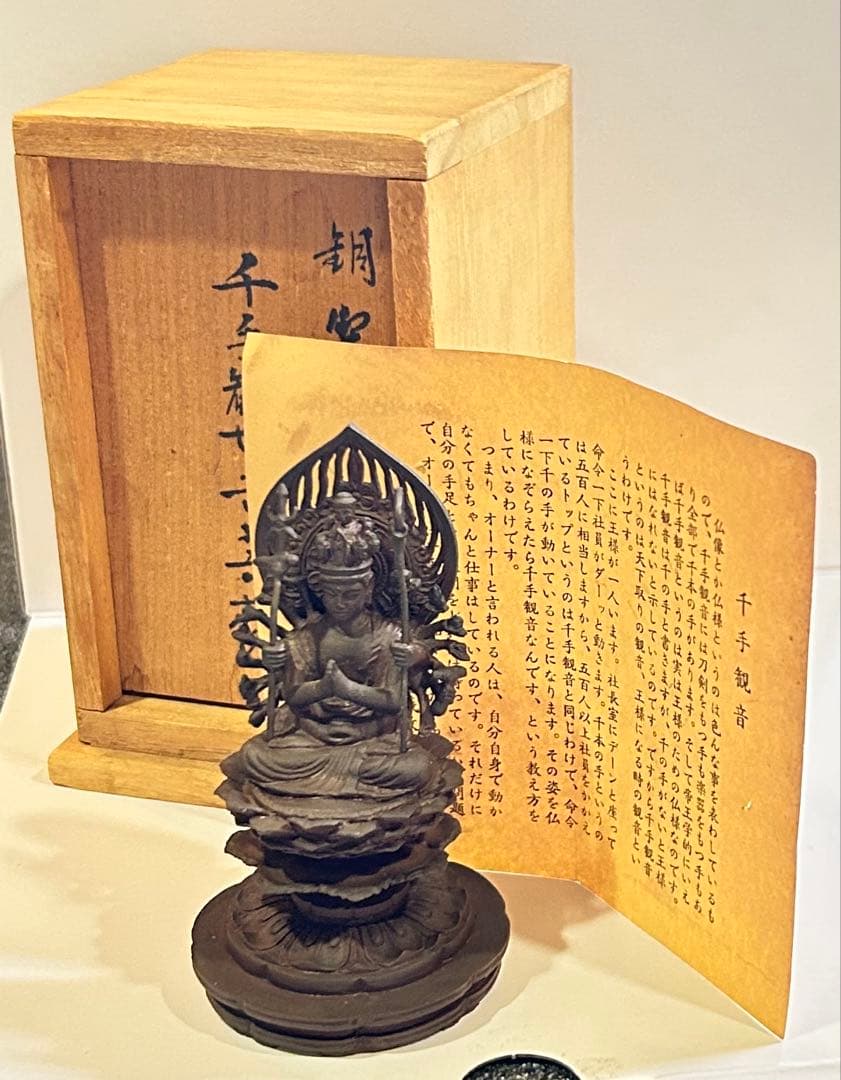 銅製
千手観音
千手観音
仏像とか仏様というのは色んな事を表わしているも
ので、千手観音には刀剣をもつ手も楽器をもつ手もあ
り全部で千本の手があります。そして帝王学的にいえ
ば千手観音というのは実は王様のための仏様なのです。
千手観音は千の手と書きますが、千の手がないと王様
にはなれないと示しているのです。ですから千手観音
というのは天下取りの観音、王様になる時の観音とい
うわけです。
ここに王様が一人います。社長室にデーンと座って
命令一下社員がダーッと動きます。千本の手というの
は五百人に相当しますから、五百人以上社員をかかえ
ているトップというのは千手観音と同じわけで、命令
一下千の手が動いていることになります。その姿を仏
様になぞらえたら千手観音なんです、という教え方を
しているわけです。
つまり、オーナーと言われる人は、自分自身で動か
なくてもちゃんと仕事はしているのです。それだけに
自分の手足と
で、オー